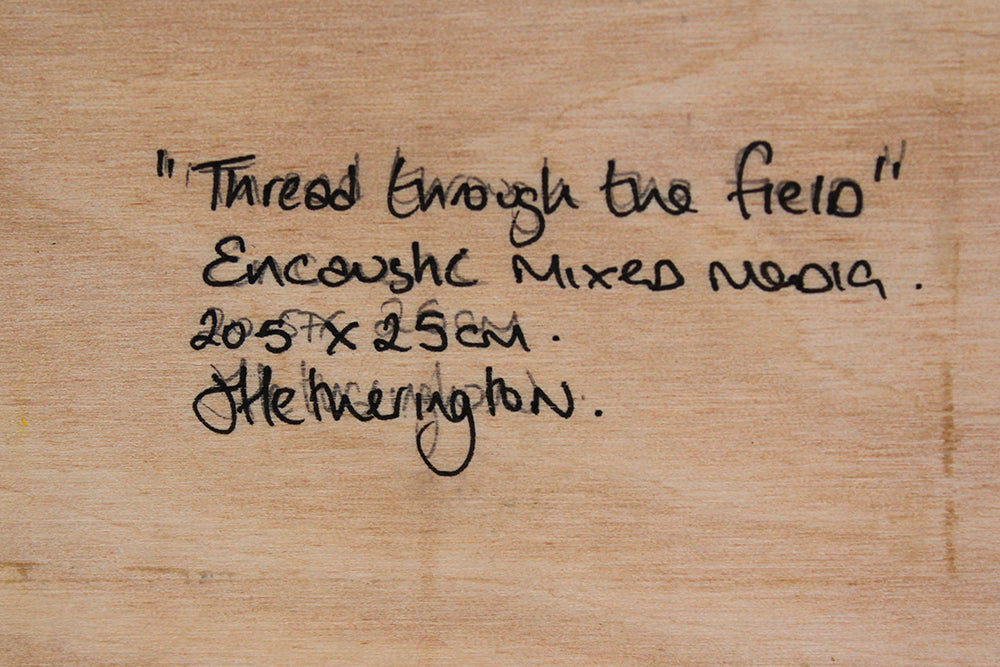 "Thread through the field"
Encaustic Mixed Media.
20.5 x 25cm.
JHetherington.